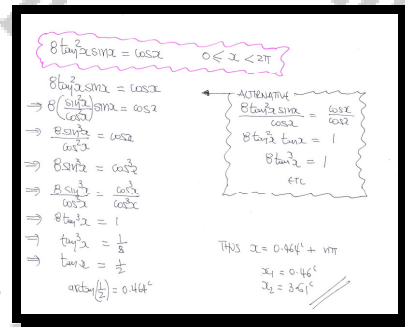 8tan²x sinx = cosx    0 ⩽ x < 2π
8tan²x sinx = cosx
⇒ 8(sin²x/cos²x) sinx = cosx
⇒ 8sin³x/cos²x = cosx
⇒ 8sin³x = cos³x
⇒ 8sin³x/cos³x = cos³x/cos³x
⇒ 8tan³x = 1
⇒ tan³x = 1/8
⇒ tanx = 1/2
arctan(1/2) = 0.464ᶜ
ALTERNATIVE
8tan²x sinx/cosx = cosx/cosx
8tan²x tanx = 1
8tan³x = 1
ETC
THUS x = 0.464ᶜ + nπ
x₁ = 0.46ᶜ
x₂ = 3.61ᶜ